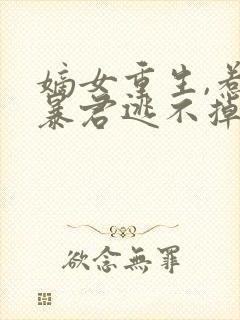 嫡女重生,惹
暴君逃不掉
欲念無罪